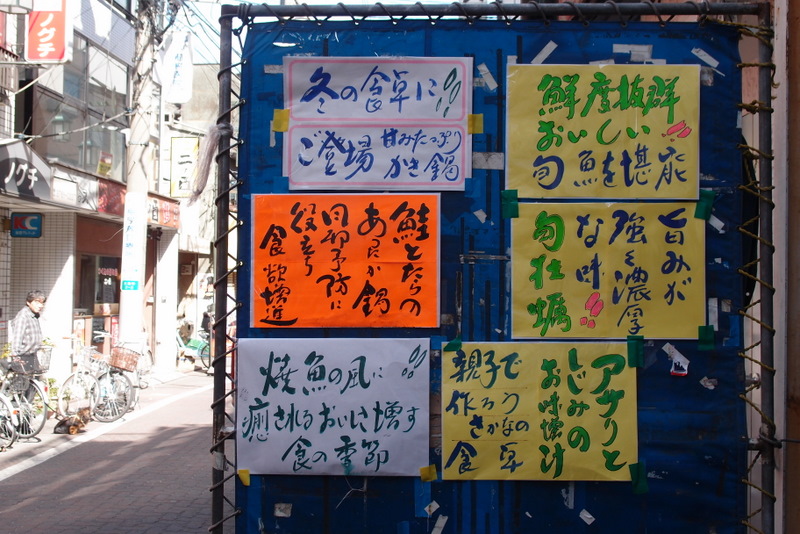 ノグチ
ノグチ
KC
冬の食卓に!!
ご登場 甘みたっぷり
かき鍋
鮮度抜群
おいしい!!
旬魚を堪能
鮭とたらの
あったか鍋
風邪予防に
役立ち
食欲増進
旨みが
強く濃厚
な味!!
旬牡蠣
焼魚の風に!!
癒されるおいしさ増す
食の季節
アサリと
しじみの
お味噌汁
親子で
作ろう
さかなの
食卓